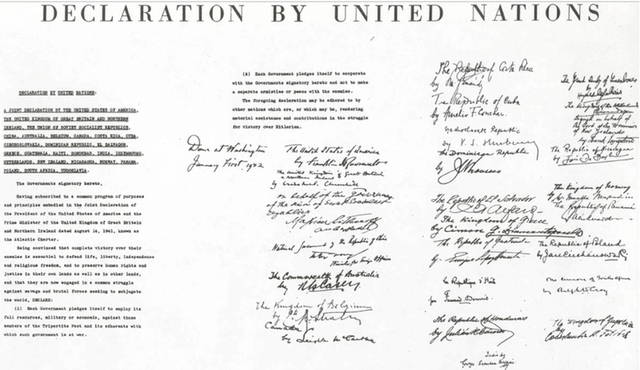 DECLARATION BY UNITED NATIONS
DECLARATION BY UNITED NATIONS:
A JOINT DECLARATION BY THE UNITED STATES OF AMERICA,
THE UNITED KINGDOM OF GREAT BRITAIN AND NORTHERN
IRELAND, THE UNION OF SOVIET SOCIALIST REPUBLICS,
CHINA, AUSTRALIA, BELGIUM, CANADA, COSTA RICA, CUBA,
CZECHOSLOVAKIA, DOMINICAN REPUBLIC, EL SALVADOR,
GREECE, GUATEMALA, HAITI, HONDURAS, INDIA, LUXEMBOURG,
NETHERLANDS, NEW ZEALAND, NICARAGUA, NORWAY, PANAMA,
POLAND, SOUTH AFRICA, YUGOSLAVIA.
The Governments signatory hereto,
Having subscribed to a common program of purposes
and principles embodied in the Joint Declaration of
the President of the United States of America and the
Prime Minister of the United Kingdom of Great Britain
and Northern Ireland dated August 14, 1941, known as
the Atlantic Charter.
Being convinced that complete victory over their
enemies is essential to defend life, liberty, independence
and religious freedom, and to preserve human rights and
justice in their own lands as well as in other lands,
and that they are now engaged in a common struggle
against savage and brutal forces seeking to subjugate
the world, DECLARE:
(1) Each Government pledges itself to employ its
full resources, military or economic, against those
members of the Tripartite Pact and its adherents with
which such government is at war.
(2) Each Government pledges itself to cooperate
with the Governments signatory hereto and not to make
a separate armistice or peace with the enemies.
The foregoing declaration may be adhered to by
other nations which are, or which may be, rendering
material assistance and contributions in the struggle
for victory over Hitlerism.
Done at Washington
January First 1942
The United States of America
by Franklin D Roosevelt
The United Kingdom of Great Britain
& Northern Ireland
by Winston Churchill
On behalf of the Government
of the Union of Soviet Socialist
Republics
Maxim Litvinoff
National Government of the Republic of China
Minister for Foreign Affairs
The Commonwealth of Australia
by
The Kingdom of Belgium
by
Canada
by Leighton McCarthy
The Republic of Costa Rica
by
The Republic of Cuba
by Aurelio F. Concheso
Czechoslovak Republic
by V. S. Hurban
The Dominican Republic
by
The Republic of El Salvador
by
The Kingdom of Greece
by Cimon
The Republic of Guatemala
by
La Republique d'Haiti
par
The Republic of Honduras
by Julián R. Cáceres
India by
Girja Shankar Bajpai
The Grand Duchy of Luxembourg
by
The Kingdom of the Netherlands
Signed on behalf of
the Govt of the Dominion
of New Zealand
by Frank Langstone
The Republic of Nicaragua
by
The Kingdom of Norway
by
The Republic of Panamá
by
The Republic of Poland
by Jan Ciechanowski
The Union of South Africa
by
The Kingdom of Yugoslavia
by